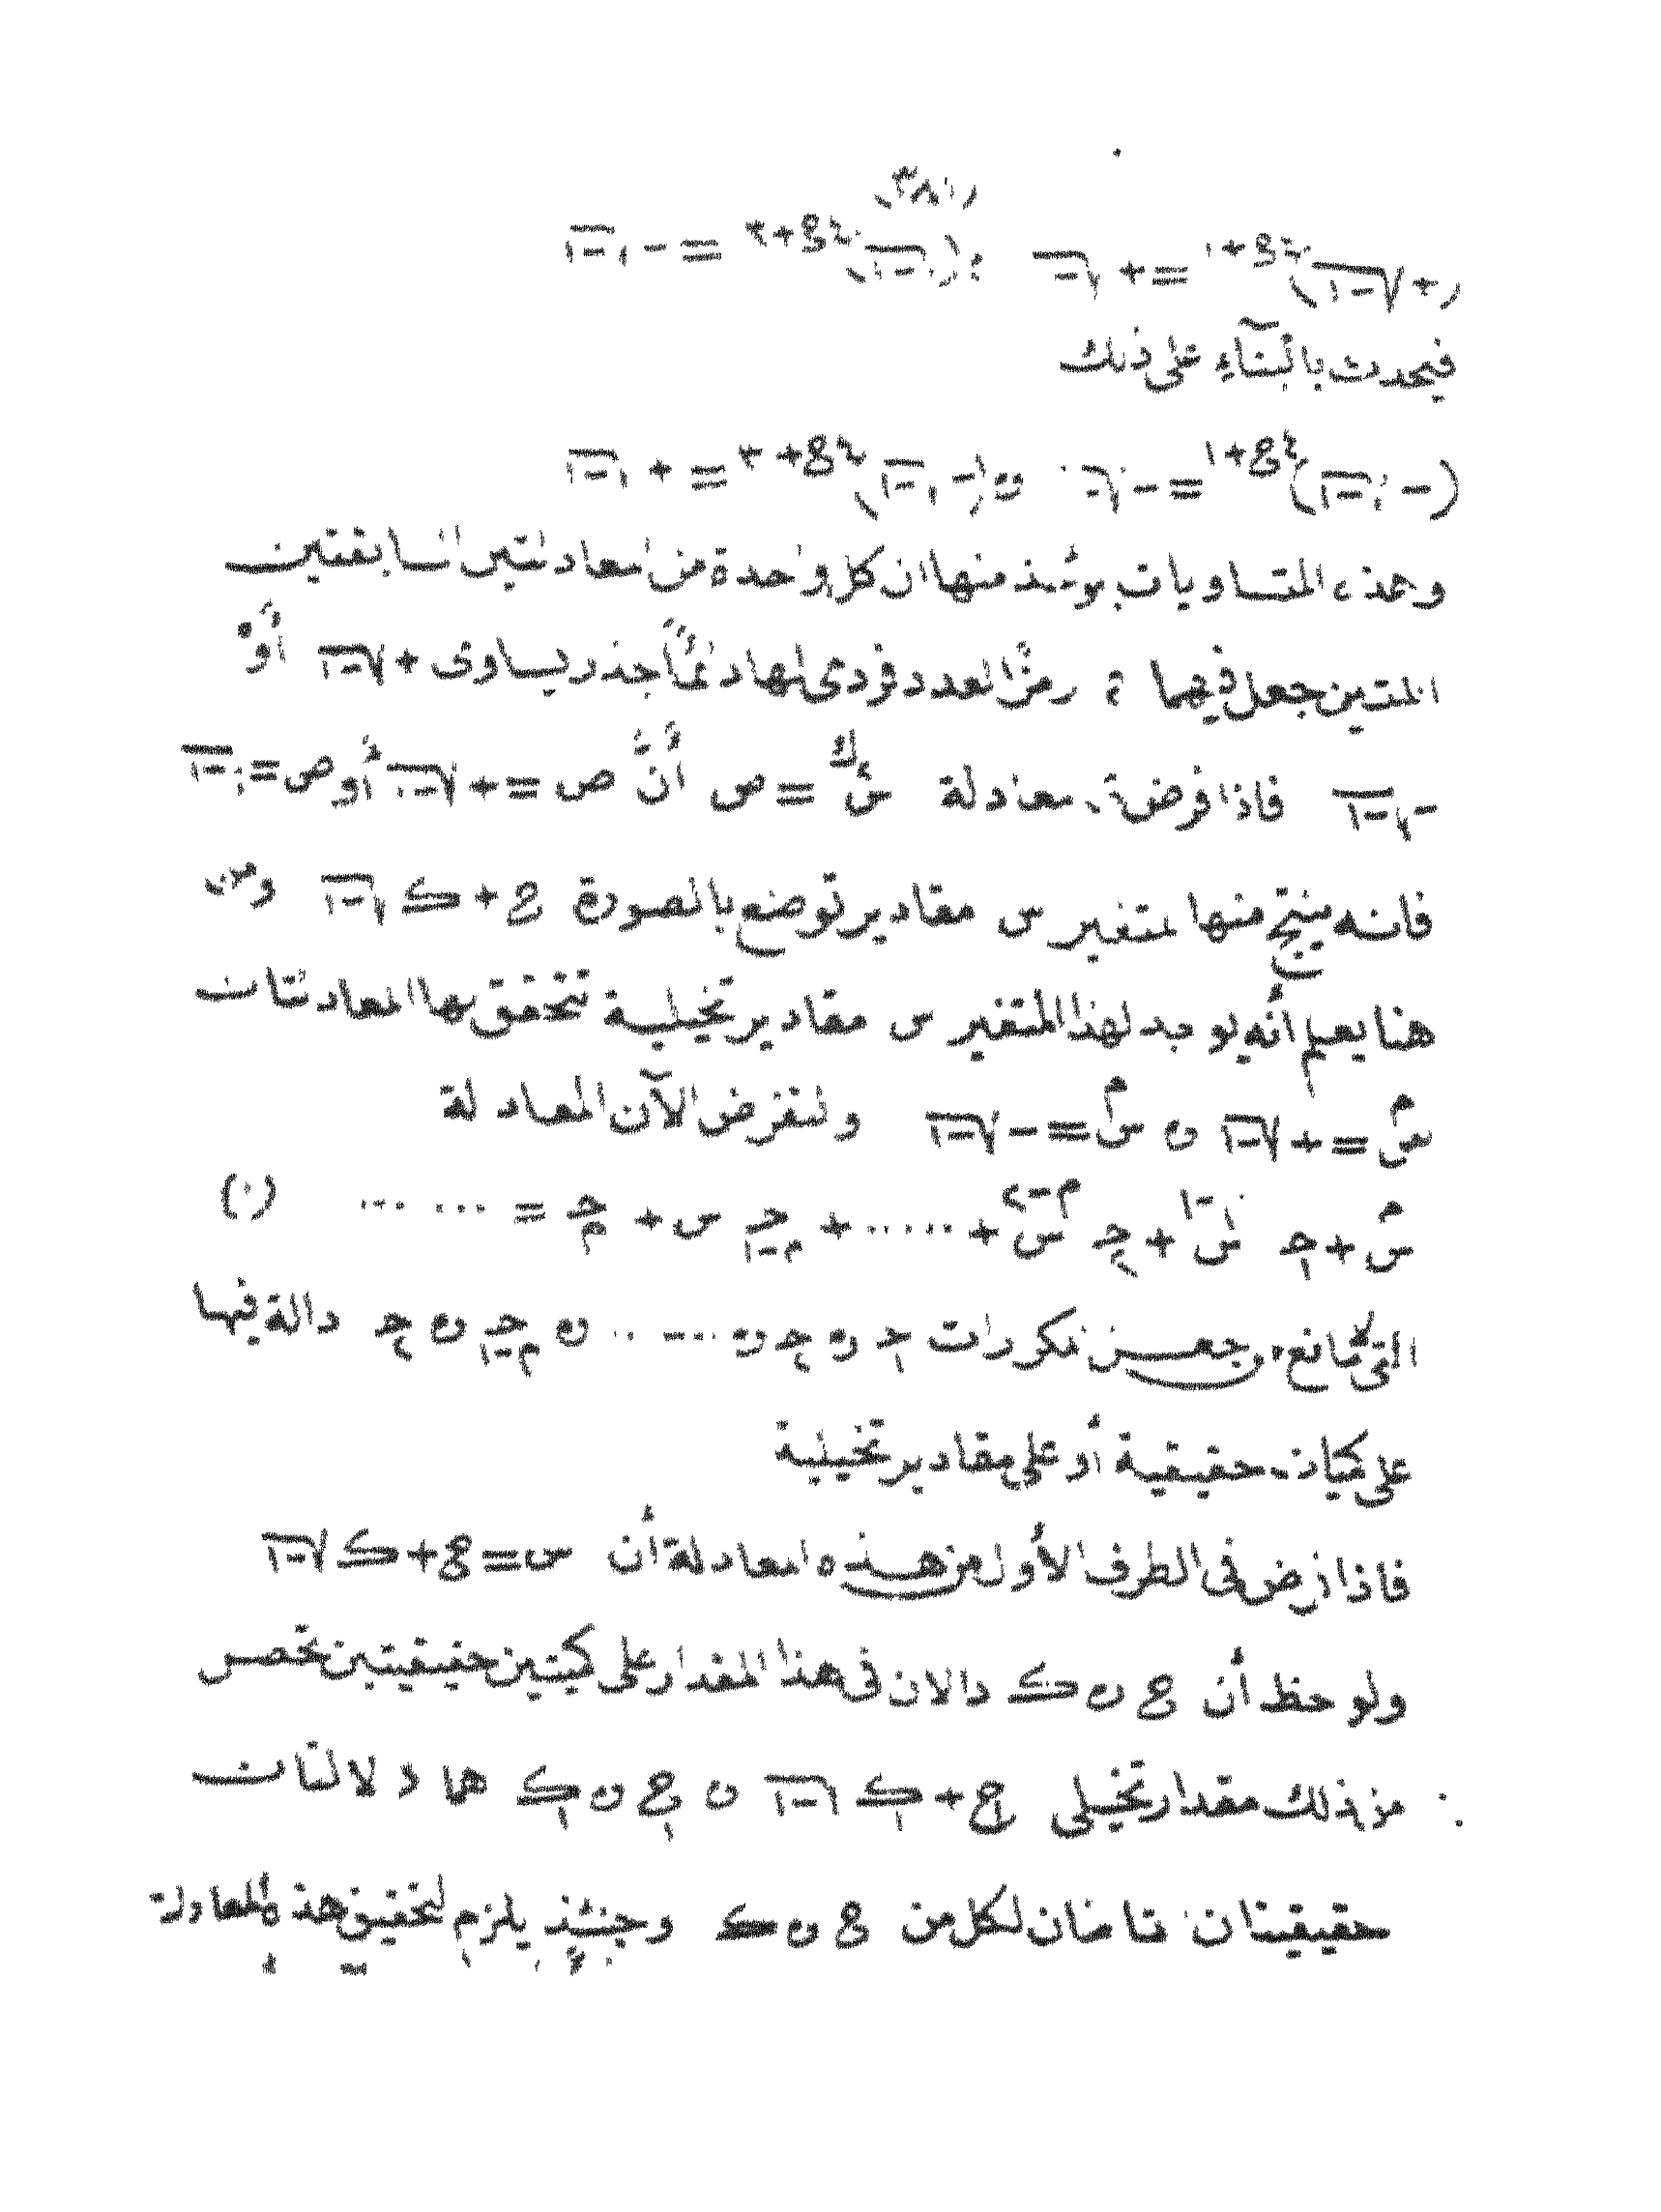 (٢٨٣)
(+√-١)^٤ع+١ = +√-١ ; (√-١)^٤ع+٣ = -√-١
فيحدث بالبناء على ذلك
(-√-١)^٤ع+١ = -√-١ و (-√-١)^٤ع+٣ = +√-١
وهذه المتساويات يؤخذ منها ان كل واحدة من المعادلتين السابقتين
المتين جعل فيهما م رمزًا لعدد فردى لها دائمًا جذر يساوى +√-١ أو
-√-١ فاذا فرض فى معادلة س^ك = ص أنّ ص = +√-١ أو ص = √-١
فانه ينتج منها لمتغير س مقادير توضع بالصورة ع + ك √-١ ومن
هنا يعلم أنه يوجد لهذا المتغير س مقادير تخيلية تتحقق بها المعادلتان
س^م = +√-١ و س^م = -√-١ ولنفرض الآن المعادلة
س^م + ج_١ س^م-١ + ج_٢ س^م-٢ + ..... + ج_م-١ س + ج_م = ... ... (١)
التى لامانع من جعل مكررات ج_١ و ج_٢ و ..... و ج_م-١ و ج_م دالة فيها
على كميات حقيقية أو على مقادير تخيلية
فاذا فرض فى الطرف الأول من هذه المعادلة أن س = ع + ك √-١
ولوحظ أن ع و ك دالان فى هذا المقدار على كميتين حقيقيتين تحصل
من ذلك مقدار تخيلى ع_١ + ك_١ √-١ و ع_١ و ك_١ هما دلالتان
حقيقيتان تامتان لكل من ع و ك وحينئذ يلزم لتحقيق هذه المعادلة